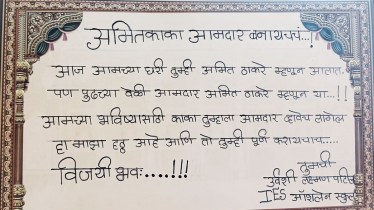 अमितकाका आमदार बनायचयं...!
आज आमच्या घरी तुम्ही अमित ठाकरे म्हणून आलात.
पण पुढच्या वेळी आमदार अमित ठाकरे म्हणून या...!!
आमच्या भविष्यासाठी काका तुम्हाला आमदार व्हावंच लागेल
हा माझा हट्ट आहे आणि तो तुम्ही पूर्ण करायचाच.....
विजयी भवः....!!!
तुमची
उर्वशी लक्ष्मण पाटील
IES ॲशलेन स्कूल